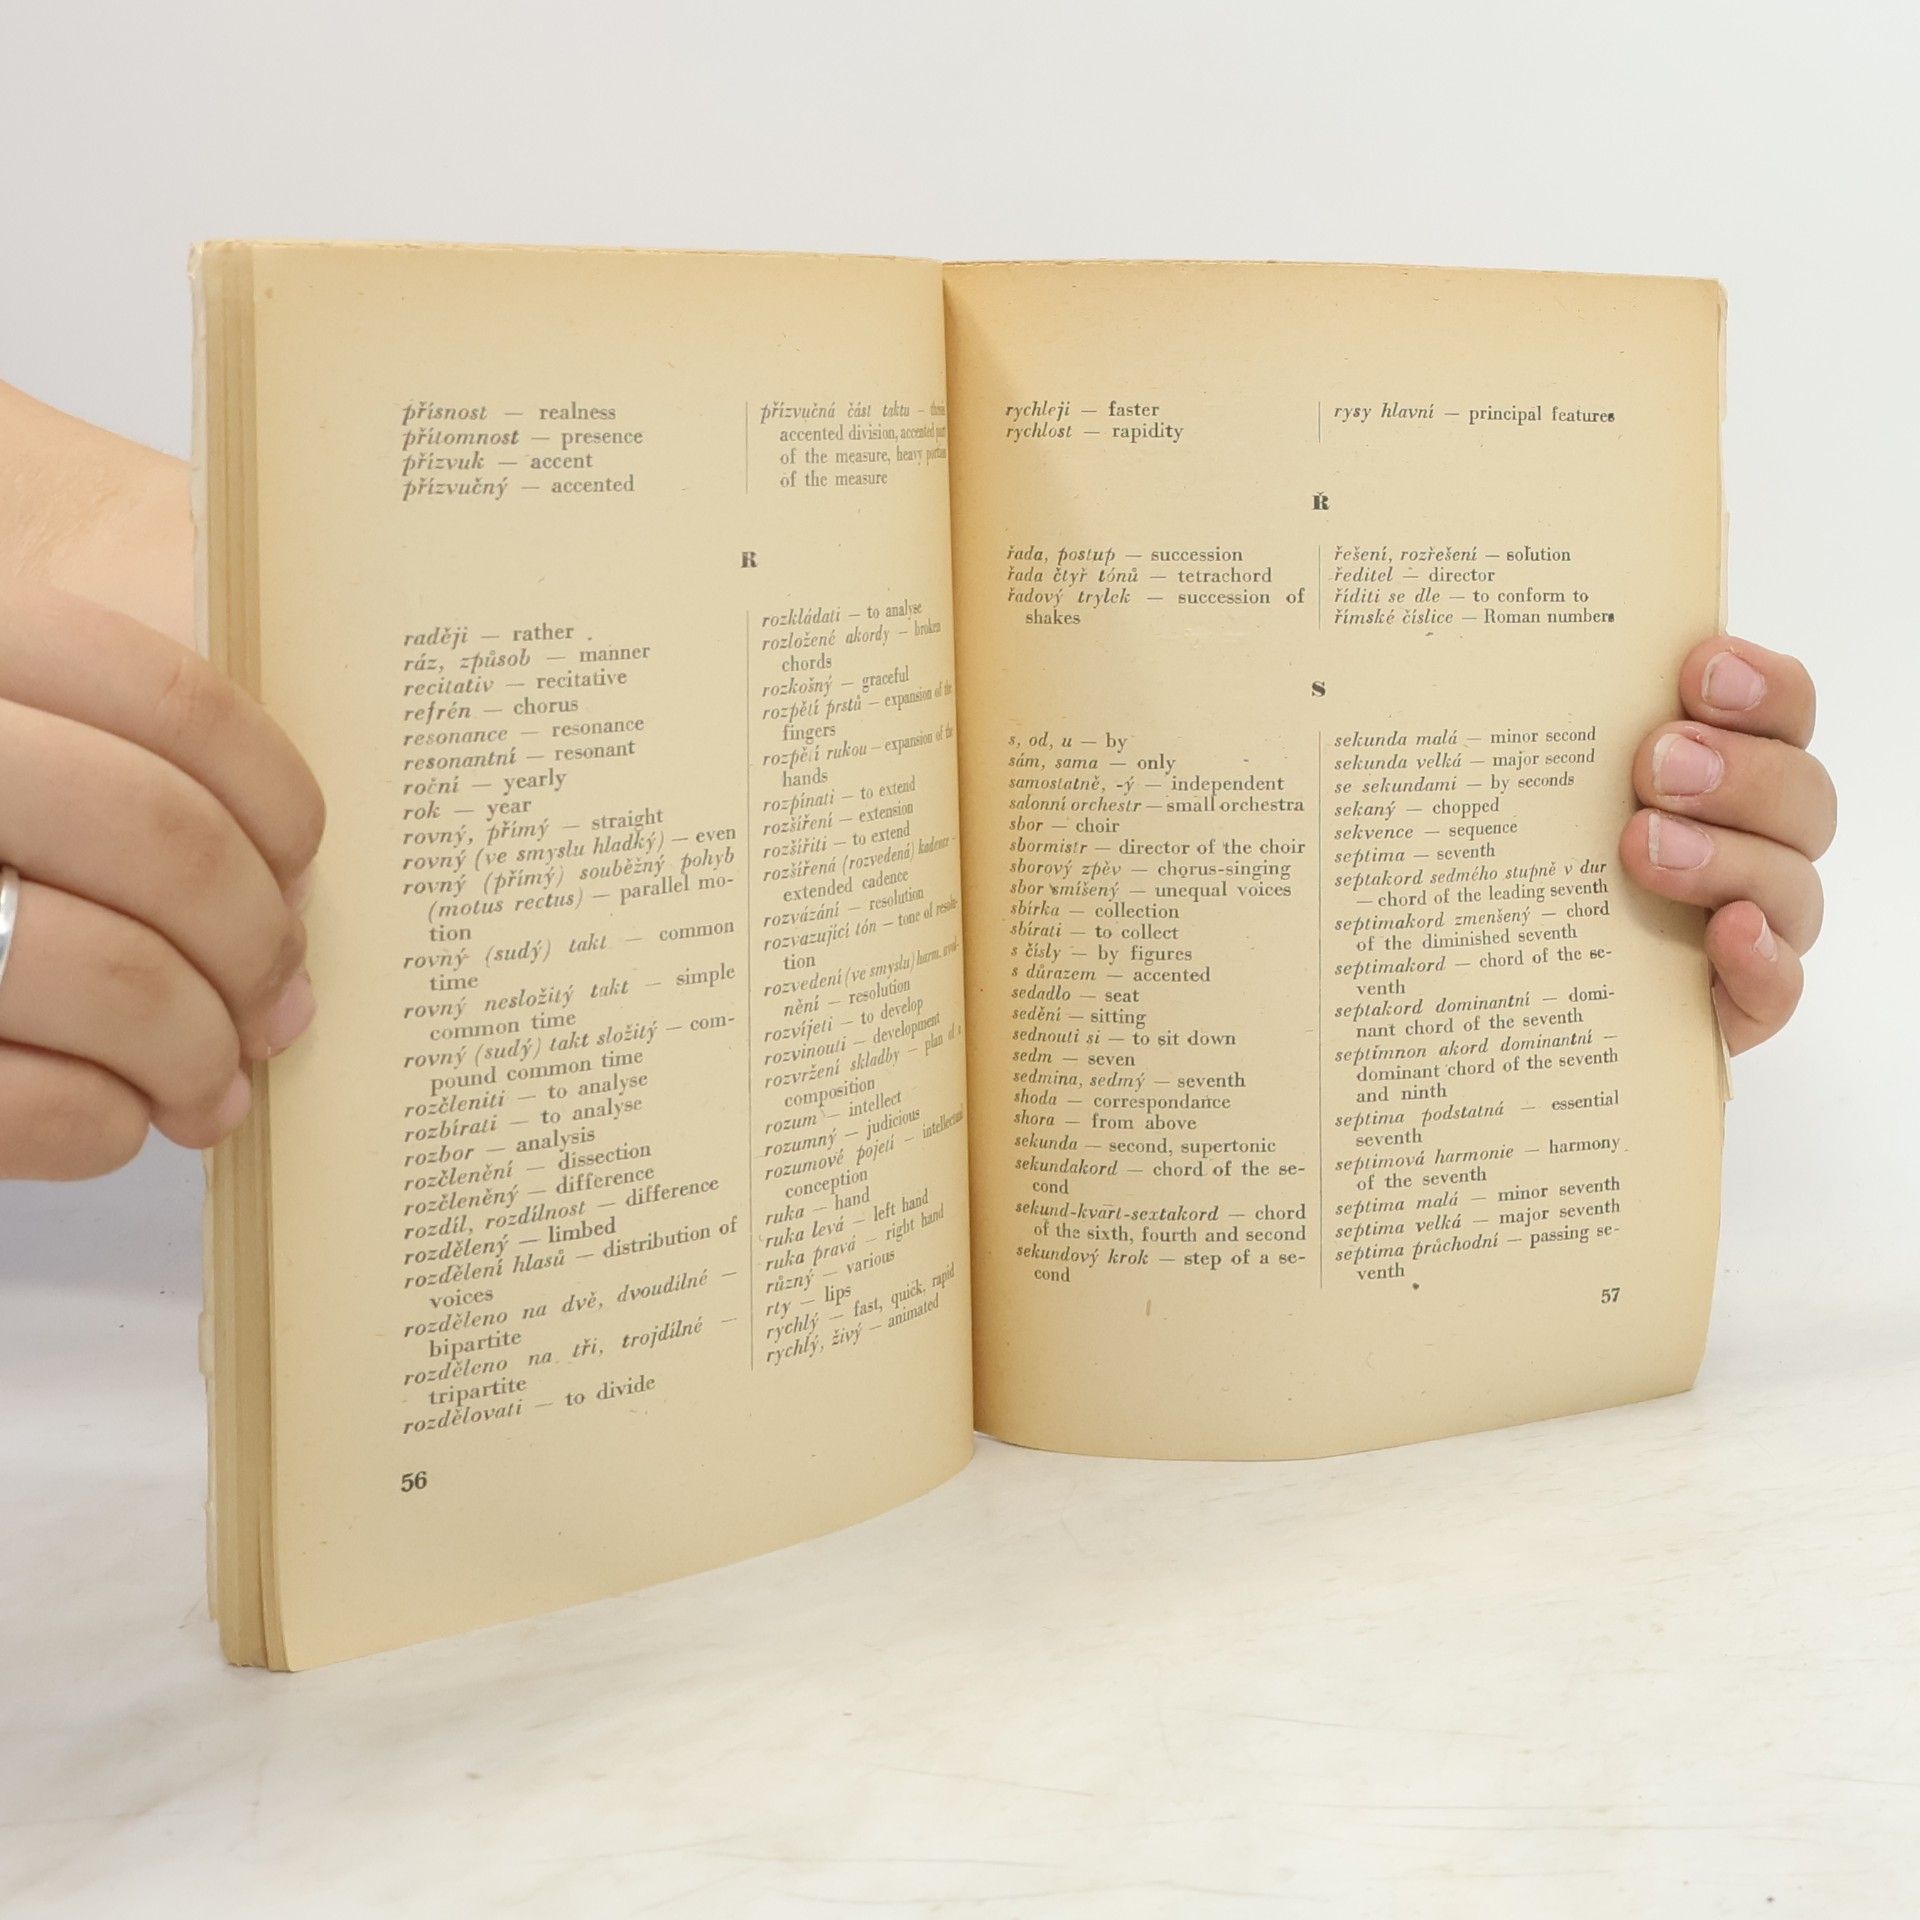 přísnost — realness
přítomnost — presence
přízvuk — accent
přízvučný — accented
přízvučná část taktu –
accented division, accented
of the measure, heavy
of the measure
R
raději — rather
ráz, způsob — manner
recitativ — recitative
refrén — chorus
resonance — resonance
resonantní — resonant
roční — yearly
rok — year
rovný, přímý — straight
rovný (ve smyslu hladký) — even
rovný (přímý) souběžný pohyb
(motus rectus) — parallel mo-
tion
rovný (sudý) takt — common
time
rovný nesložitý takt — simple
common time
rovný (sudý) takt složitý — com-
pound common time
rozčleniti — to analyse
rozbírati — to analyse
rozbor — analysis
rozčlenění — dissection
rozčleněný — difference
rozdíl, rozdílnost — difference
rozdělený — limbed
rozdělení hlasů — distribution of
voices
rozděleno na dvě, dvoudílné —
bipartite
rozděleno na tři, trojdílné —
tripartite
rozdělovati — to divide
rozkládati — to analyse
rozložené akordy — broken
chords
rozkošný — graceful
rozpětí prstů — expansion of the
fingers
rozpětí rukou — expansion of the
hands
rozpínati — to extend
rozšíření — extension
rozšířiti — to extend
rozšířená (rozvedená) kadence –
extended cadence
rozvázání — resolution
rozvazující tón — tone of resolu-
tion
rozvedení (ve smyslu) harm.
nění — resolution
rozvíjeti — to develop
rozvinouti — development
rozvržení skladby — plan of a
composition
rozum — intellect
rozumný — judicious
rozumové pojetí — intellectual
conception
ruka — hand
ruka levá — left hand
ruka pravá — right hand
různý — various
rty — lips
rychlý — fast, quick, rapid
rychlý, živý — animated
56
rychleji — faster
rychlost — rapidity
rysy hlavní — principal features
Ř
řada, postup — succession
řada čtyř tónů — tetrachord
řadový trylek — succession of
shakes
řešení, rozřešení — solution
ředitel — director
říditi se dle — to conform to
římské číslice — Roman numbers
S
s, od, u — by
sám, sama — only
samostatně, -ý — independent
salonní orchestr — small orchestra
sbor — choir
sbormistr — director of the choir
sborový zpěv — chorus-singing
sbor smíšený — unequal voices
sbírka — collection
sbírati — to collect
s čísly — by figures
s důrazem — accented
sedadlo — seat
sedění — sitting
sednouti si — to sit down
sedm — seven
sedmina, sedmý — seventh
shoda — correspondance
shora — from above
sekunda — second, supertonic
sekundakord — chord of the se-
cond
sekund-kvart-sextakord — chord
of the sixth, fourth and second
sekundový krok — step of a se-
cond
sekunda malá — minor second
sekunda velká — major second
se sekundami — by seconds
sekaný — chopped
sekvence — sequence
septima — seventh
septakord sedmého stupně v dur
— chord of the leading seventh
septimakord zmenšený — chord
of the diminished seventh
septimakord — chord of the se-
venth
septakord dominantní — domi-
nant chord of the seventh
septimnon akord dominantní —
dominant chord of the seventh
and ninth
septima podstatná — essential
seventh
septimová harmonie — harmony
of the seventh
septima malá — minor seventh
septima velká — major seventh
septima průchodní — passing se-
venth
57